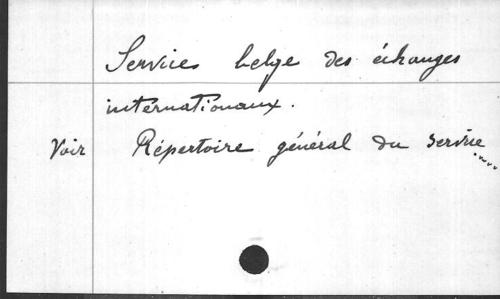 Services belge des échanges
internationaux.
Voir Répertoire général du service....